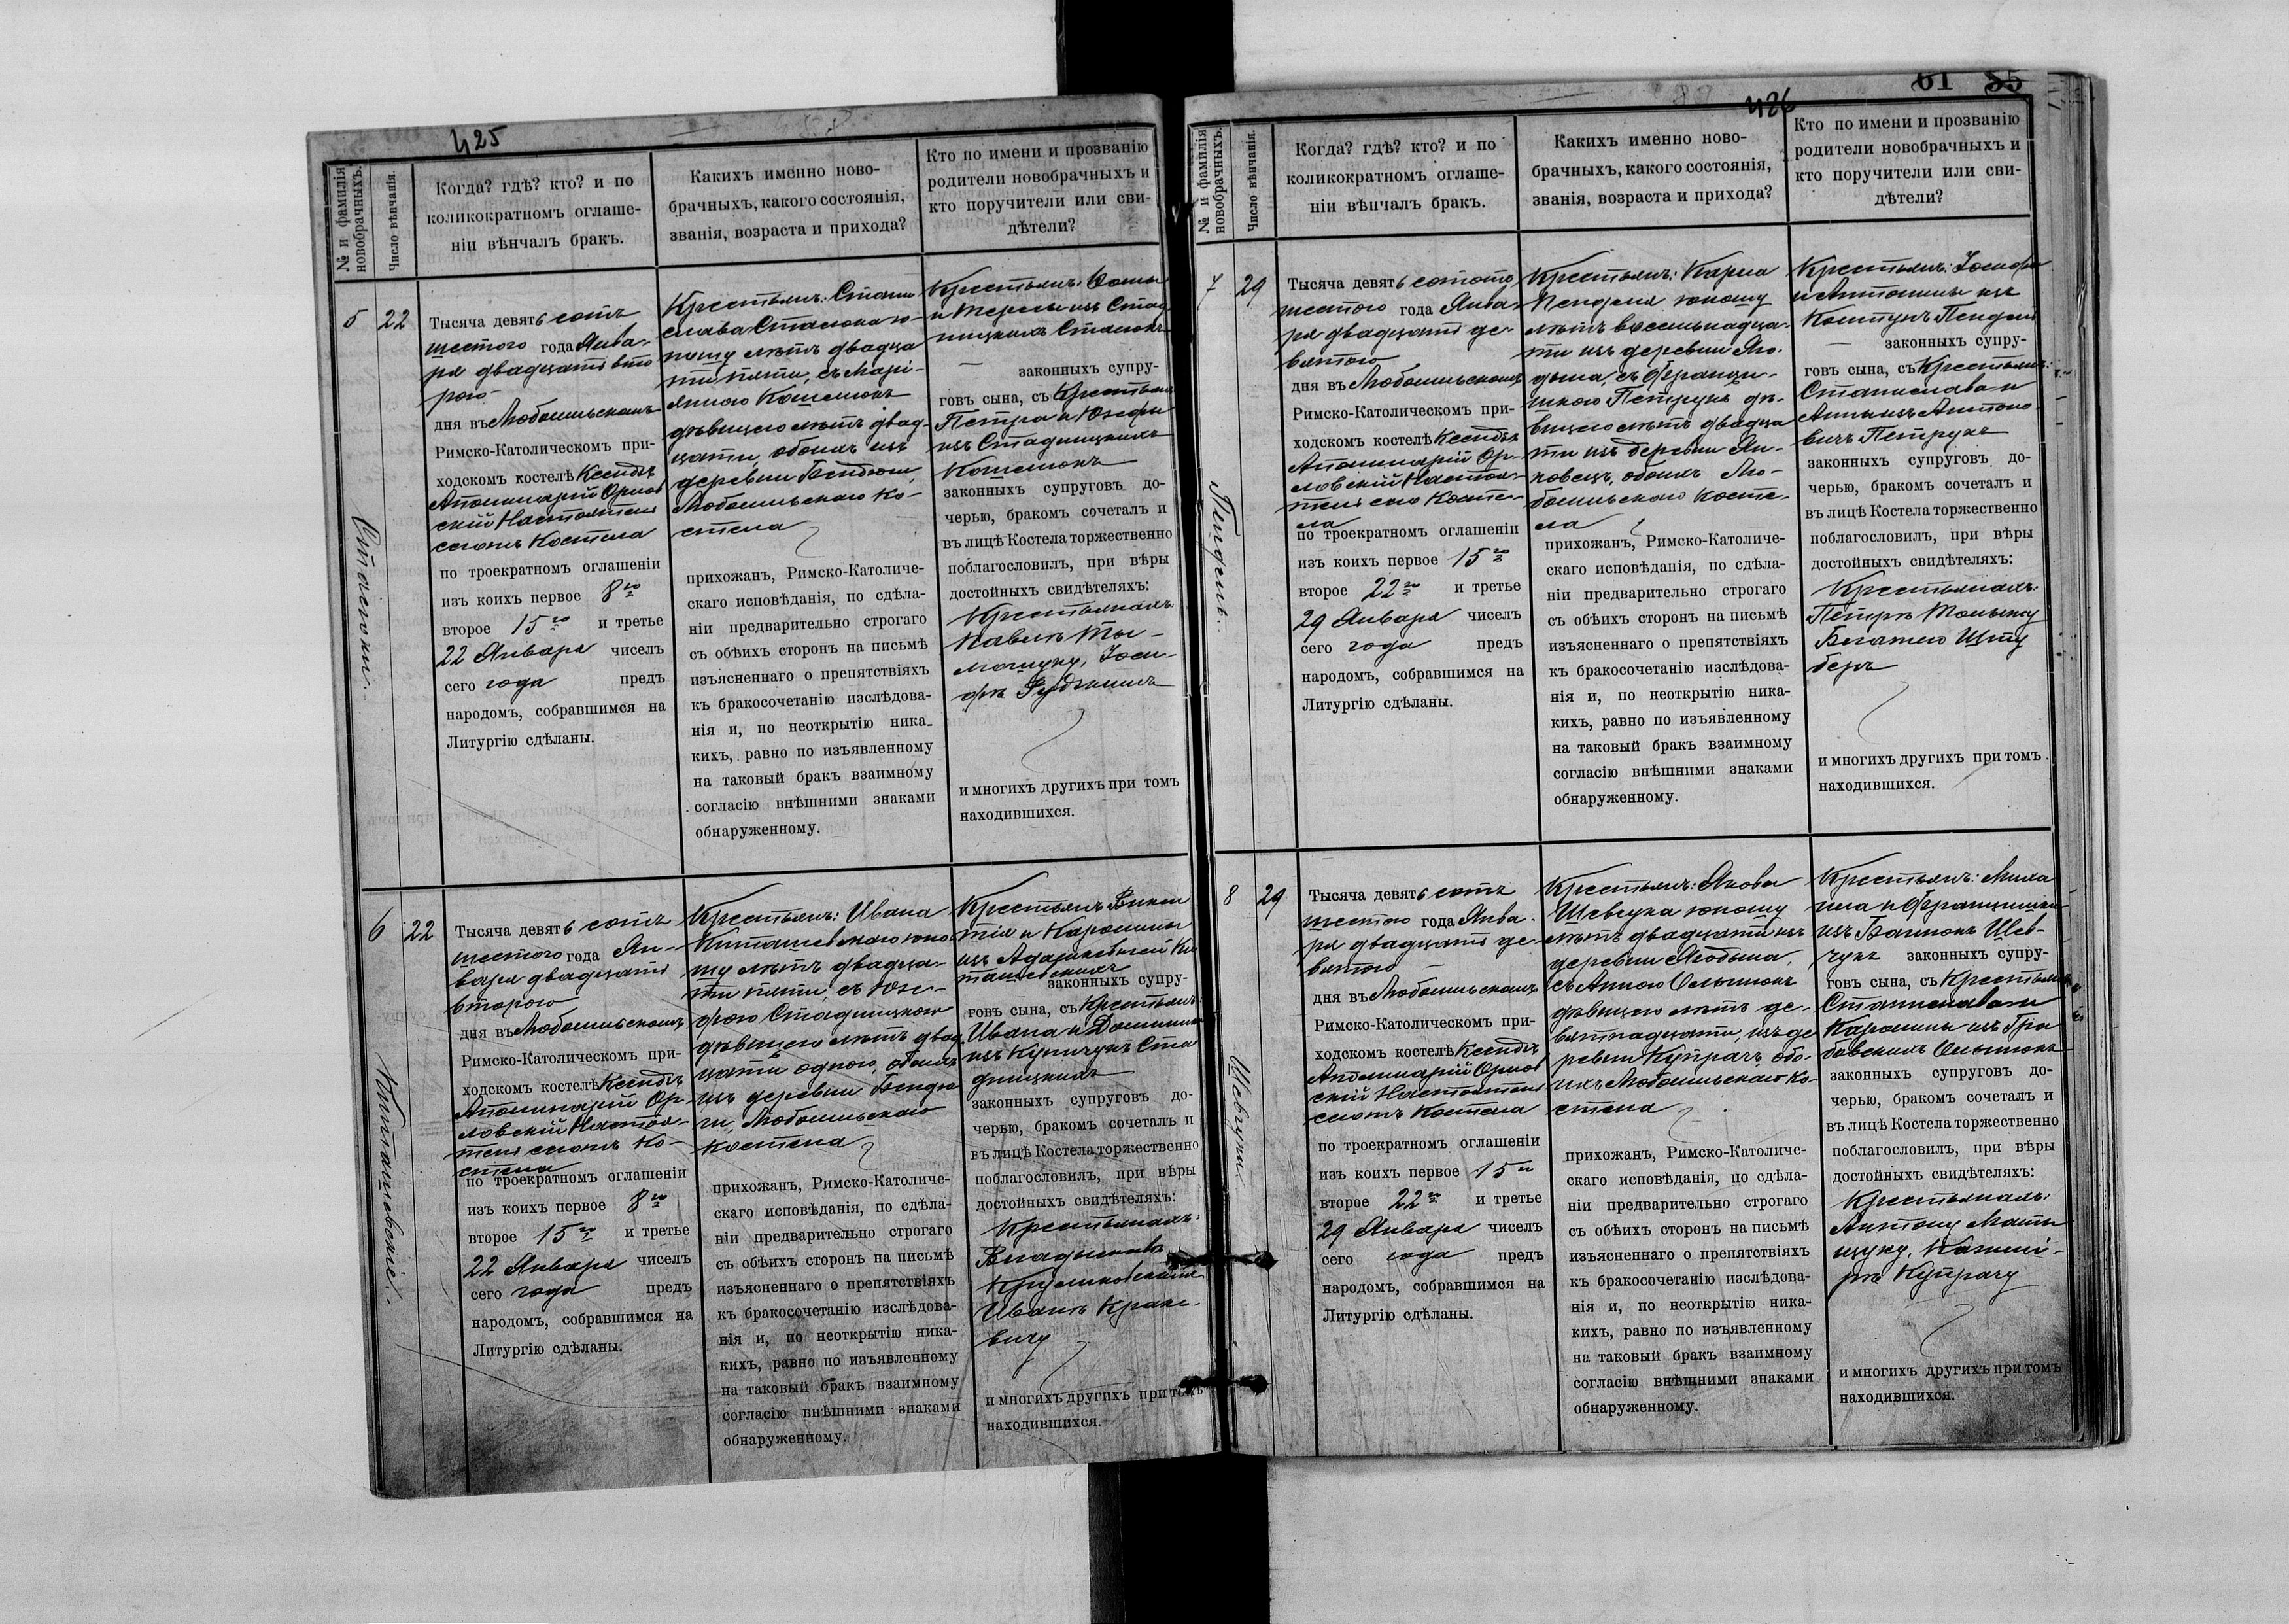 425
№ и фамилія
новобрачныхъ.
Число вѣнчанія.
Когда? гдѣ? кто? и по
коликократномъ оглаше-
ніи вѣнчалъ бракъ.
Какихъ именно ново-
брачныхъ, какого состоянія,
званія, возраста и прихода?
Кто по имени и прозванію
родители новобрачныхъ и
кто поручители или сви-
дѣтели?
5
22
Тысяча девятьсотъ
шестого года Янва-
ря двадцать вто
рого
дня въ Любомльскомъ
Римско-Католическомъ при-
ходскомъ костелѣ Ксендзъ
Аполинарій Орлов
скій Настоятель
сегожъ Костела
по троекратномъ оглашеніи
изъ коихъ первое 8го
второе 15го и третье
22 Января чиселъ
сего года предъ
народомъ, собравшимся на
Литургію сдѣланы.
Крестьянъ: Стани
слава Сталюка ю-
ношу лѣтъ двадца
ти пяти, съ Марі-
анною Кошелюкъ
дѣвицею лѣтъ двад-
цати, обоихъ изъ
деревни Бендюги,
Любомльскаго Ко-
стела
прихожанъ, Римско-Католиче-
скаго исповѣданія, по сдѣла-
ніи предварительно строгаго
съ обѣихъ сторонъ на письмѣ
изъясненнаго о препятствіяхъ
къ бракосочетанію изслѣдова-
нія и, по неоткрытію ника-
кихъ, равно по изъявленному
на таковый бракъ взаимному
согласію внѣшними знаками
обнаруженному.
Крестьянъ: Ѳомы
и Терезы изъ Стад
ницкихъ Сталюкъ
законныхъ супру-
говъ сына, съ Крестьянъ
Петра и Юзефы
изъ Стадницкихъ
Кошелюкъ
законныхъ супруговъ до-
черью, бракомъ сочеталъ и
въ лицѣ Костела торжественно
поблагословилъ, при вѣры
достойныхъ свидѣтеляхъ:
Крестьянахъ
Павелъ
Іоси-
фъ
и многихъ другихъ при томъ
находившихся.
Сталюки.
6
22
Тысяча девятьсотъ
шестого года Ян-
варя двадцать
второго
дня въ Любомльскомъ
Римско-Католическомъ при-
ходскомъ костелѣ Ксендзъ
Аполинарій Ор-
ловскій Настоя-
тель сегожъ Ко-
стела
по троекратномъ оглашеніи
изъ коихъ первое 8го
второе 15го и третье
22 Января чиселъ
сего года предъ
народомъ, собравшимся на
Литургію сдѣланы.
Крестьянъ: Ивана
Киташевскаго юно-
шу лѣтъ двадца-
ти пяти, съ Юзе-
фою Стадницкою
дѣвицею лѣтъ двад
цати одного, обоихъ
изъ деревни Бендю
ги, Любомльскаго
Костела
прихожанъ, Римско-Католиче-
скаго исповѣданія, по сдѣла-
ніи предварительно строгаго
съ обѣихъ сторонъ на письмѣ
изъясненнаго о препятствіяхъ
къ бракосочетанію изслѣдова-
нія и, по неоткрытію ника-
кихъ, равно по изъявленному
на таковый бракъ взаимному
согласію внѣшними знаками
обнаруженному.
Крестьянъ Викен
тія и Каролины
изъ Ки
ташевскихъ
законныхъ супру-
говъ сына, съ Крестьянъ
Ивана и
изъ Ста
дницкихъ
законныхъ супруговъ до-
черью, бракомъ сочеталъ и
въ лицѣ Костела торжественно
поблагословилъ, при вѣры
достойныхъ свидѣтеляхъ:
Крестьянахъ:
и многихъ другихъ при томъ
находившихся.
Киташевскіе.
61 85
426
№ и фамилія
новобрачныхъ.
Число вѣнчанія.
Когда? гдѣ? кто? и по
коликократномъ оглаше-
ніи вѣнчалъ бракъ.
Какихъ именно ново-
брачныхъ, какого состоянія,
званія, возраста и прихода?
Кто по имени и прозванію
родители новобрачныхъ и
кто поручители или сви-
дѣтели?
7
29
Тысяча девятьсотого
шестого года Янва-
ря двадцать де-
вятого
дня въ Любомльскомъ
Римско-Католическомъ при-
ходскомъ костелѣ Ксендзъ
Аполинарій Ор-
ловскій Настоя-
тель сего Косте-
ла
по троекратномъ оглашеніи
изъ коихъ первое 15го
второе 22го и третье
29 Января чиселъ
сего года предъ
народомъ, собравшимся на
Литургію сдѣланы.
Крестьянъ: Карла
Пенделя юношу
лѣтъ восемьнадца-
ти изъ деревни Яго-
дына, съ Францы-
шкою Петрукъ дѣ-
вицею лѣтъ двадца
ти изъ деревни Ян-
ковецъ, обоихъ Лю-
бомльскаго Косте-
ла
прихожанъ, Римско-Католиче-
скаго исповѣданія, по сдѣла-
ніи предварительно строгаго
съ обѣихъ сторонъ на письмѣ
изъясненнаго о препятствіяхъ
къ бракосочетанію изслѣдова-
нія и, по неоткрытію ника-
кихъ, равно по изъявленному
на таковый бракъ взаимному
согласію внѣшними знаками
обнаруженному.
Крестьянъ: Іосифа
и Антонины изъ
Пендель
законныхъ супру-
говъ сына, съ Крестьянъ:
Станислава и
Анны изъ Антоно-
вичъ Петрукъ
законныхъ супруговъ до-
черью, бракомъ сочеталъ и
въ лицѣ Костела торжественно
поблагословилъ, при вѣры
достойныхъ свидѣтеляхъ:
Крестьянахъ:
Петръ
и многихъ другихъ при томъ
находившихся.
Пендель.
8
29
Тысяча девятьсотъ
шестого года Янва-
ря двадцать де-
вятого
дня въ Любомльскомъ
Римско-Католическомъ при-
ходскомъ костелѣ Ксендзъ
Аполинарій Орлов
скій Настоятель
сегожъ Костела
по троекратномъ оглашеніи
изъ коихъ первое 15го
второе 22го и третье
29 Января чиселъ
сего года предъ
народомъ, собравшимся на
Литургію сдѣланы.
Крестьянъ: Якова
Шевчука юношу
лѣтъ двадцати изъ
деревни Ягодына,
съ Анною Олынюкъ
дѣвицею лѣтъ де-
вятнадцати, изъ де
ревни Купрачъ, обо-
ихъ Любомльскаго Ко-
стела
прихожанъ, Римско-Католиче-
скаго исповѣданія, по сдѣла-
ніи предварительно строгаго
съ обѣихъ сторонъ на письмѣ
изъясненнаго о препятствіяхъ
къ бракосочетанію изслѣдова-
нія и, по неоткрытію ника-
кихъ, равно по изъявленному
на таковый бракъ взаимному
согласію внѣшними знаками
обнаруженному.
Крестьянъ: Миха
ила и Францишки
изъ Шев-
чукъ законныхъ супру-
говъ сына, съ Крестьянъ
Станислава и
Каролины изъ Гра
бовскихъ Олынюкъ
законныхъ супруговъ до-
черью, бракомъ сочеталъ и
въ лицѣ Костела торжественно
поблагословилъ, при вѣры
достойныхъ свидѣтеляхъ:
Крестьянахъ:
Антону
Казимі-
ръ Купрачу
и многихъ другихъ при томъ
находившихся.
Шевчуки.